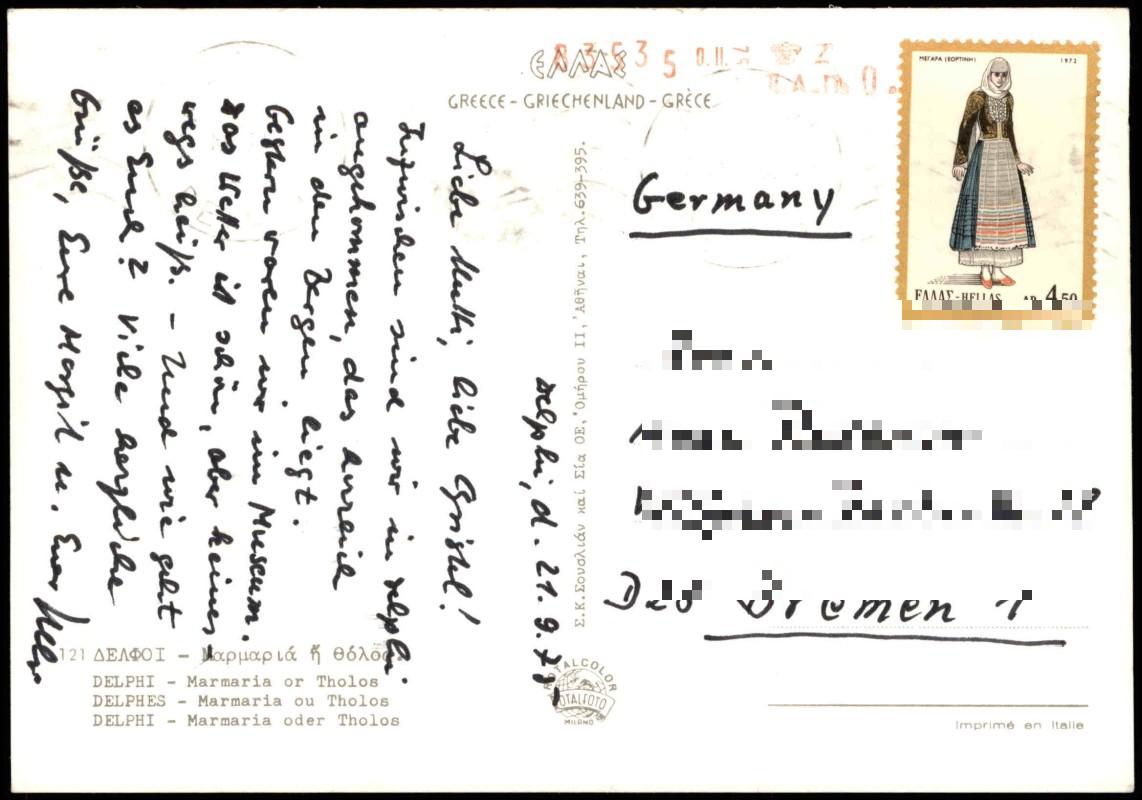 ΕΛΛΑΣ
GREECE - GRIECHENLAND - GRÈCE
ΜΕΓΑΡΑ (ΕΟΡΤΙΝΗ) 1972
ΕΛΛΑΣ-HELLAS ΔΡ. 4.50
Delphi, d. 21. 9. 7
Liebe Mutti, liebe Christel!
Inzwischen sind wir in Delphi
angekommen, das herrlich
in den Bergen liegt.
Gestern waren wir im Museum.
Das Wetter ist schön, aber keines-
wegs heiß. – Und wie geht
es Euch? Viele herzliche
Grüße, Eure Margit u. Euer
Σ.Κ.Σουσλιάν καί Σία ΟΕ, Ὁμήρου ΙΙ, Ἀθῆναι, Τηλ. 639-395.
Germany
Bremen 1
121 ΔΕΛΦΟΙ - Μαρμαριά ἤ θόλος.
DELPHI - Marmaria or Tholos
DELPHES - Marmaria ou Tholos
DELPHI - Marmaria oder Tholos
TOTALCOLOR
TOTALFOTO
MILANO
Imprimé en Italie